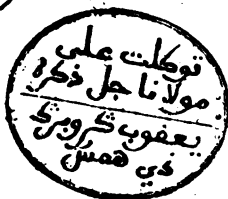 توكلت على
مولانا جل ذكره
يعقوب ڭروبرڭ
دي همسُ